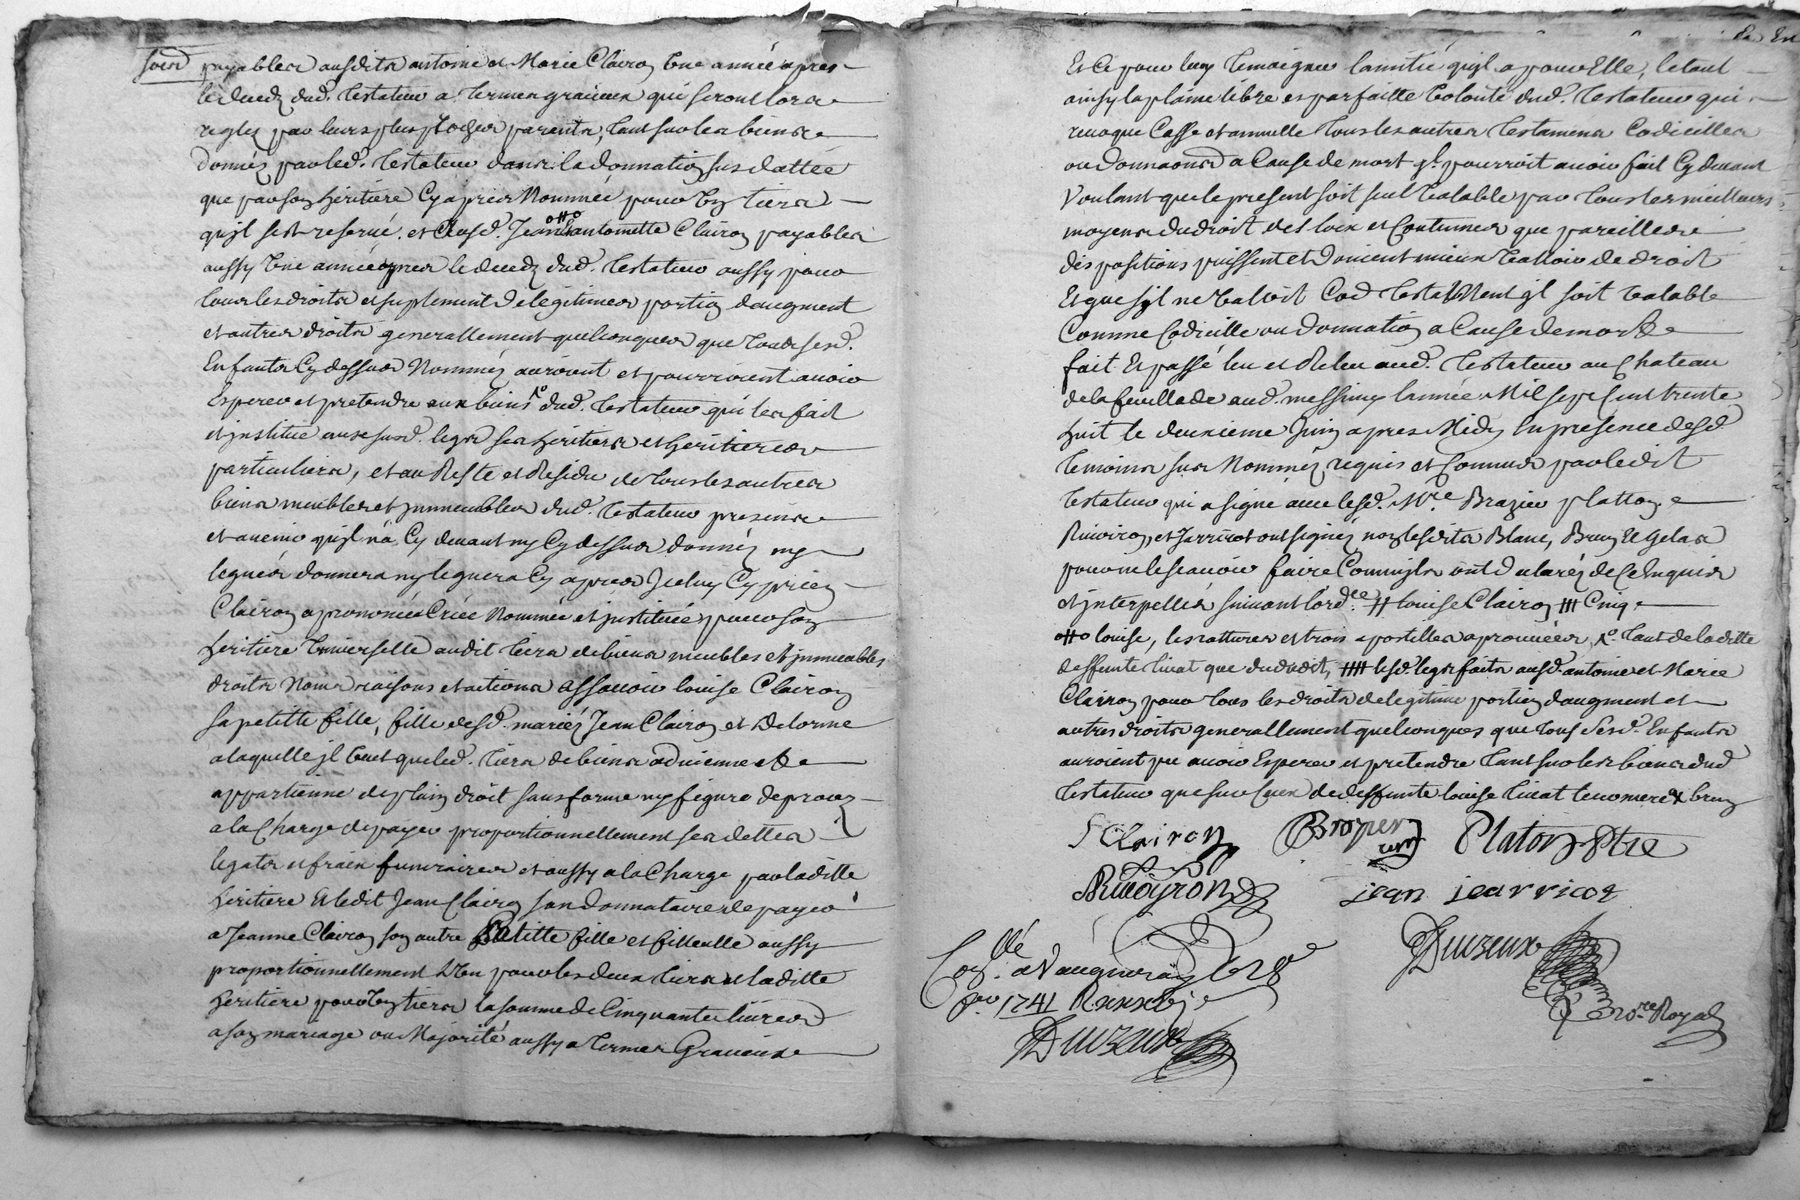 payables ausdits antoine et Marie Clairon une année apres
le deced dud. testateur a termes gratieux qui seront lors
reglez par leurs plus proches parents, tant sur les biens
donnés par led. testateur dans la donnation sus dattée
que par son héritière Cy après Nommée pour un tiers
qu'jl sest reservé. et ausd. Jean antoinette Clairon payables
aussy une année apres le deced dud. testateur aussy pour
tous les droits et suplement de legitimes portion daugment
et autres droits generallement quelconques que tous sesd.
Enfants Cy dessus Nommés auroient et pourroient avoir
Esperer et pretendre aux biens dud. testateur qui les fait
et jnstitue auxsusd. legs ses heritiers et heritieres
particuliers, et au Reste et Residu de tous les autres
biens meubles et jmmeubles dud. testateur presens
et avenir qu'jl n'a Cy devant ny Cy dessus donnés ny
legués donnera ny leguera Cy après Jceluy Cyprien
Clairon a prononcée Créée Nommée et jnstituée pour son
heritiere Universelle audit tiers de biens meubles et jmmeubles
droits Noms raisons et actions assavoir louise Clairon
sa petitte fille, fille desd. mariés Jean Clairon et Delorme
a laquelle jl veut que led. tiers de biens advienne et
appartienne de plain droit sans forme ny figure de procez
a la Charge de payer proportionnellement ses dettes
legats et fraix funeraires et aussy a la Charge par laditte
heritiere Et ledit Jean Clairon son donnataire de payer
a Jeanne Clairon son autre petitte fille et filleulle aussy
proportionnellement l'un pour les deux tiers et laditte
heritiere pour un tiers la somme de Cinquante livres
a son mariage ou Majorité aussy a termes Gratieux
Et Ce pour luy temoigner lamitié qu'jl a pour Elle, Etant
ainsy la plaine libre et parfaitte volonté dud. testateur qui
revoque Casse et annulle tous les autres testamens Codicilles
ou donnaons a Cause de mort qu'jl pourroit avoir fait Cy devant
Voulant que le present soit seul valable par tous les meilleurs
moyens du droit des loix et Coutumes que pareilles
dispositions puissent et doivent mieux valloir de droit
Et que s'jl ne valoit Comme testament jl soit valable
Comme Codicille ou donnation a Cause de mort
fait Et passé leu et Releu aud. testateur au Chateau
de la feuillade aud. messimy lannée Mil sept Cent trente
huit le deuxieme Juin apres Midy En presence desd.
temoins sus Nommés requis et Connus par ledit
testateur qui a signé avec lesd. Mre. Brazier platton
Rivoiron, et Jarricot ont signés non lesdits Blanc, Brun Et Gelas
pour ne le scavoir faire Comme jls ont declarés de Ce Enquis
et jnterpellés suivant lordce. # louise Clairon ### Cinq
o++o louise, les rattures et trois apostilles aprouvées, tant de laditte
deffunte livat que dudit, #### lesd. legs faits ausd. antoine et Marie
Clairon pour tous les droits de legitime portion daugment et
autres droits generallement quelconques que tous Sesd. Enfants
auroient peu avoir Esperer et pretendre tant sur les biens dud.
testateur que sur Ceux de deffunte louise livat brun
S Clairon Brazier Platon Ptre
Rivoyron jean jearricot
Collé a Vaugneray
1741
Duizeux
Duizeux
Nore. Royal